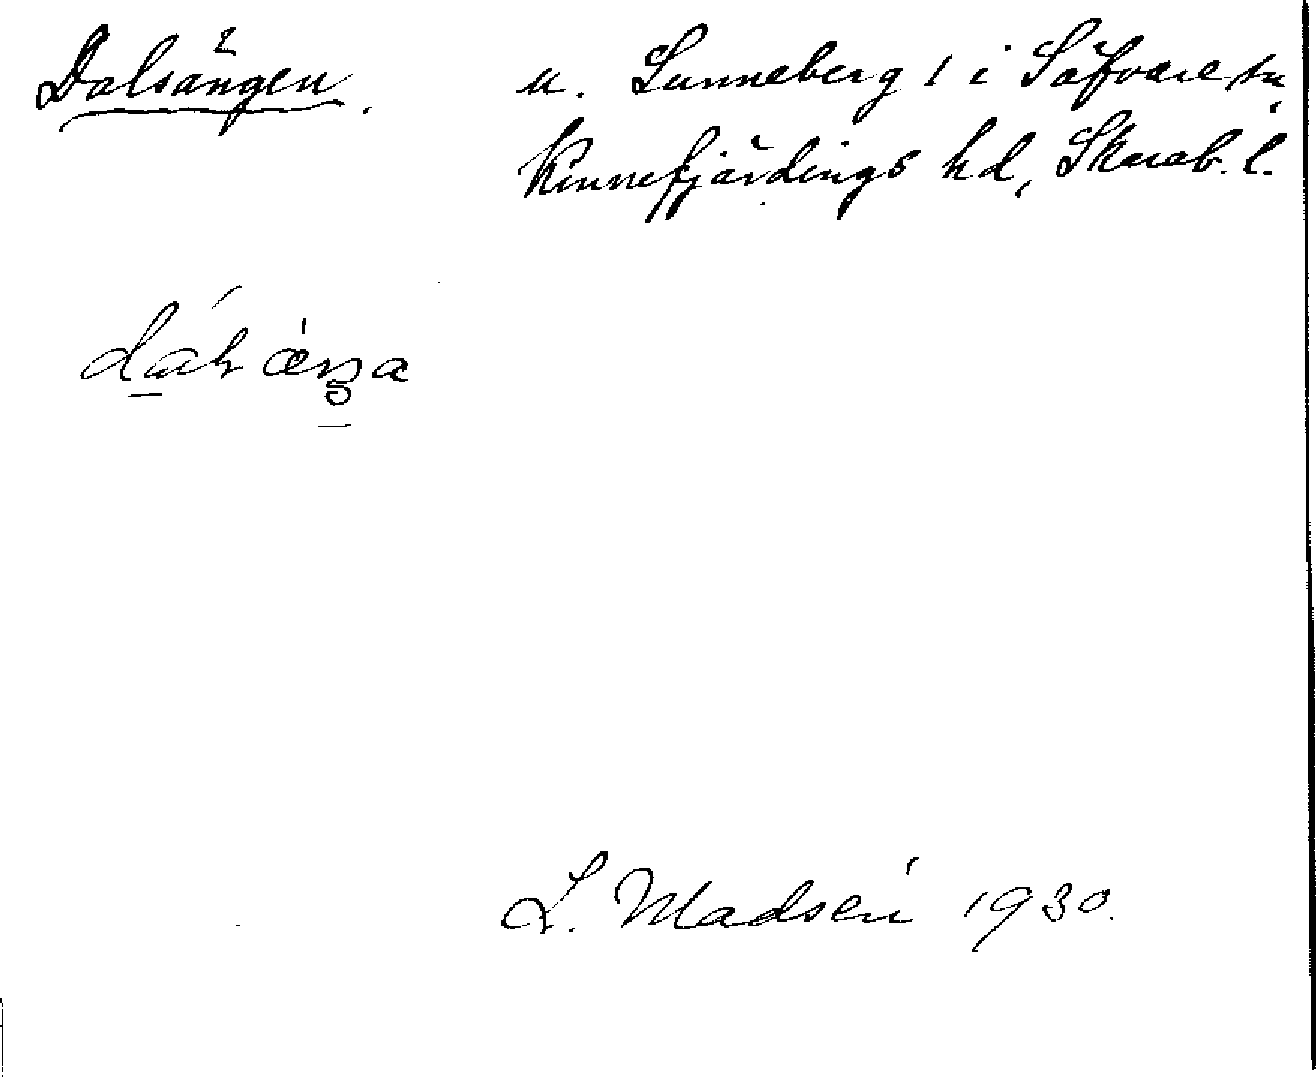 Dalsängen. u. Lunneberg 1 i Säfvare sn,
Kinnefjärdings hd, Skarab. l.
L. Madsén 1930.